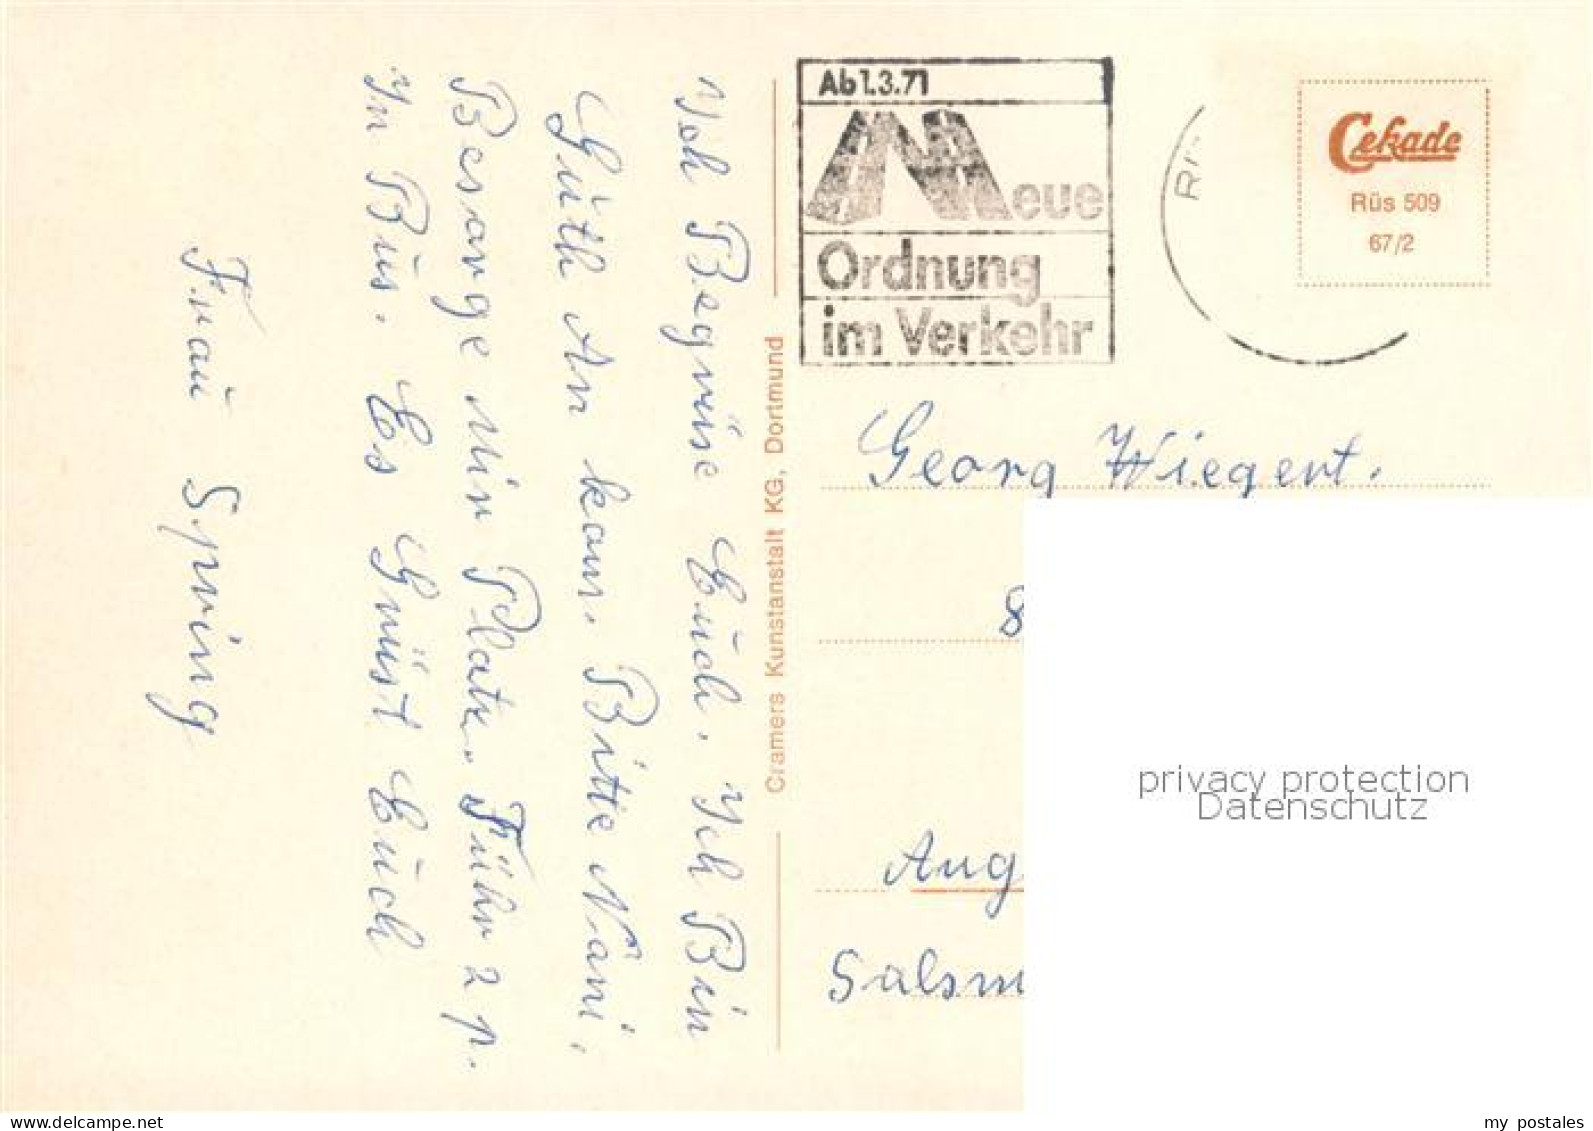 Ich Begrüse Euch. Ich Bin
Guth An kom. Bitte Nani,
Besorge Mir Platz. Führ 2 p.
In Bus. Es Grüst Euch
Frau Spring
Cramers Kunstanstalt KG, Dortmund
Ab 1.3.71
Neue
Ordnung
im Verkehr
Cekade
Rüs 509
67/2
Georg Wiegert.
8
Aug
Salsm
privacy protection
Datenschutz
delcampe.net
my_postales